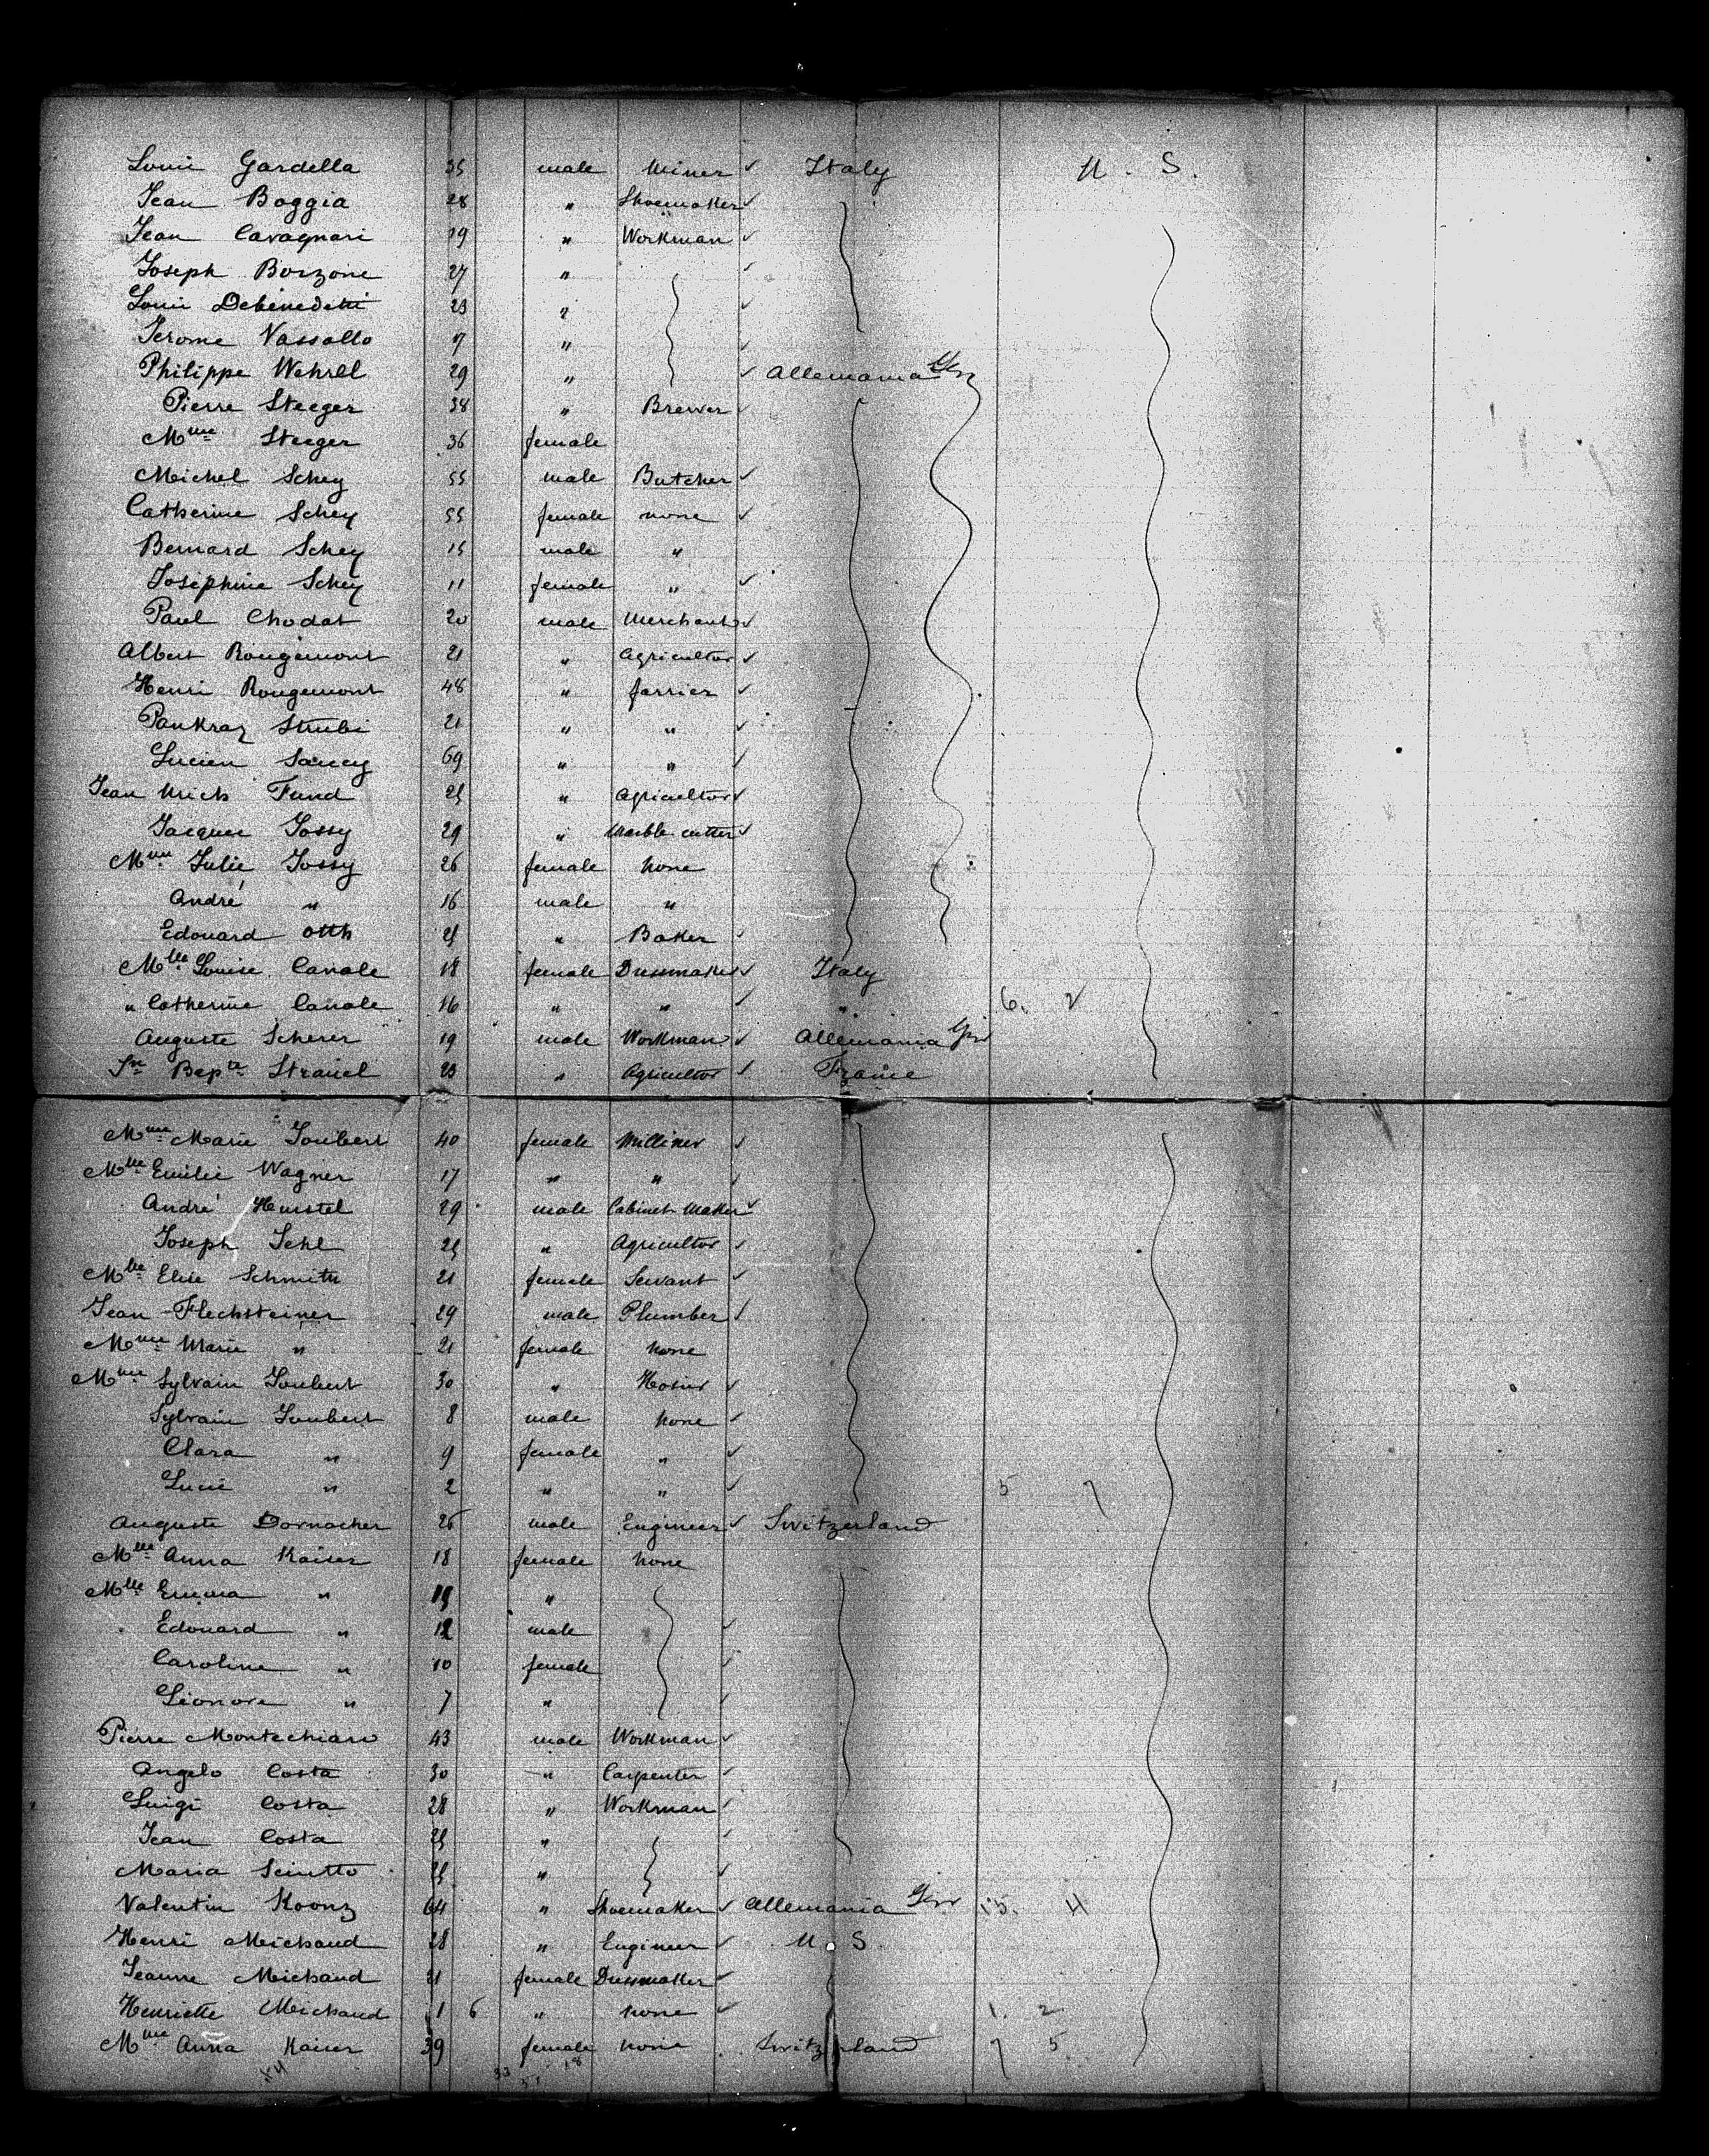 Louis Gardella 35 male Miner ✓ Italy U. S.
Jean Boggia 28 " Shoemaker ✓
Jean Cavagnari 19 " Workman ✓
Joseph Borzone 27 " ✓
Louis Debenedetti 23 " ✓
Jerome Vassallo 17 " ✓
Philippe Wehrel 29 " ✓ Allemania Ger
Pierre Steeger 38 " Brewer ✓
Mme Steeger 36 female
Michel Schey 55 male Butcher ✓
Catherine Schey 55 female none ✓
Bernard Schey 15 male "
Joséphine Schey 11 female " ✓
Paul Chodat 20 male Merchant ✓
Albert Rougemont 21 " Agricultor ✓
Henri Rougemont 48 " farrier ✓
Pankraz Strubi 21 " " ✓
Lucien Saucy 69 " " ✓
Jean Ulrich Fund 25 " Agricultor ✓
Jacques Jossy 29 " Marble cutter ✓
Mme Julie Jossy 26 female none
André " 16 male "
Edouard Otth 25 " Baker ✓
Mlle Louise Canale 18 female Dressmaker ✓ Italy
" Catherine Canale 16 " " ✓ " 6. 2
Auguste Scherer 19 male Workman ✓ Allemania Ger
Jn Bapte Strauel 23 " Agricultor ✓ France
Mme Marie Joubert 40 female Milliner ✓
Mlle Emilie Wagner 17 " " ✓
André Heustel 29 male Cabinet Maker ✓
Joseph Sehl 25 " Agricultor ✓
Mlle Elise Schmith 21 female Servant ✓
Jean Flechsteiner 29 male Plumber ✓
Mme Marie " 21 female none
Mme Sylvain Joubert 30 " Hosier ✓
Sylvain Joubert 8 male none ✓
Clara " 9 female " ✓
Lucie " 2 " " ✓ 5 7
Auguste Dornacher 26 male Engineer ✓ Switzerland
Mlle Anna Kaiser 18 female none
Mlle Emma " 15 "
Edouard " 12 male ✓
Caroline " 10 female ✓
Léonore " 7 " ✓
Pierre Montechiaro 43 male Workman ✓
Angelo Costa 30 " Carpenter ✓
Luigi Costa 28 " Workman ✓
Jean Costa 25 " ✓
Maria Sciutto 25 " ✓
Valentin Koonz 64 " Shoemaker ✓ Allemania Ger 15. 4
Henri Michaud 28 " Engineer ✓ U. S.
Jeanne Michaud 21 female Dressmaker ✓
Henriette Michaud 1 6 " none ✓ 1. 2
Mme Anna Kaiser 39 female none Switzerland 7 5
54 33 18
51